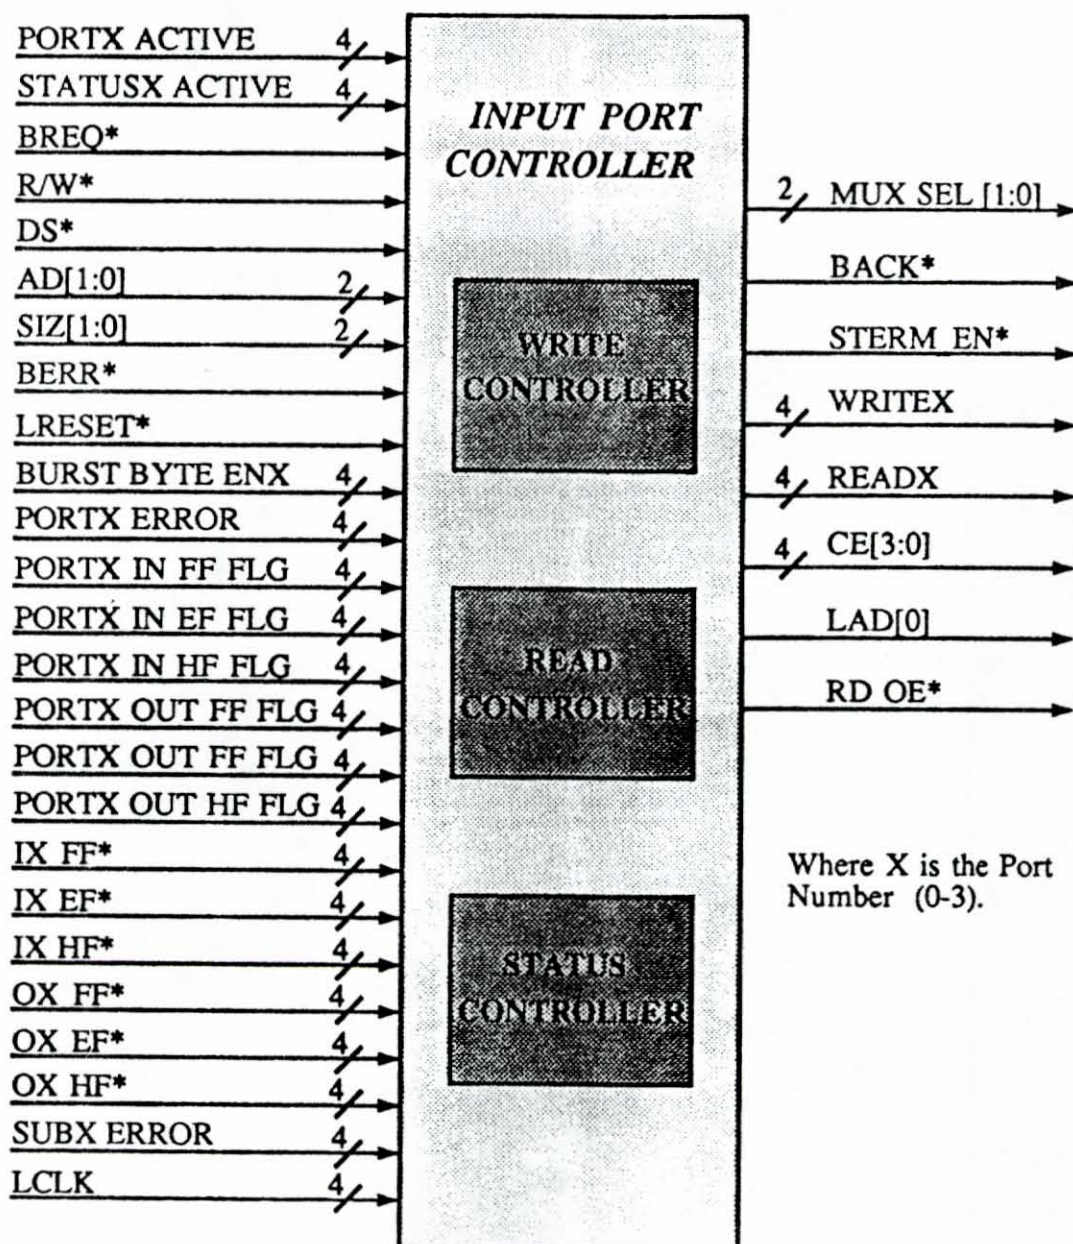 PORTX ACTIVE 4
STATUSX ACTIVE 4
BREQ*
R/W*
DS*
AD[1:0] 2
SIZ[1:0] 2
BERR*
LRESET*
BURST BYTE ENX 4
PORTX ERROR 4
PORTX IN FF FLG 4
PORTX IN EF FLG 4
PORTX IN HF FLG 4
PORTX OUT FF FLG 4
PORTX OUT FF FLG 4
PORTX OUT HF FLG 4
IX FF* 4
IX EF* 4
IX HF* 4
OX FF* 4
OX EF* 4
OX HF* 4
SUBX ERROR 4
LCLK 4
INPUT PORT
CONTROLLER
WRITE
CONTROLLER
READ
CONTROLLER
STATUS
CONTROLLER
2 MUX SEL [1:0]
BACK*
STERM EN*
4 WRITEX
4 READX
4 CE[3:0]
LAD[0]
RD OE*
Where X is the Port
Number (0-3).